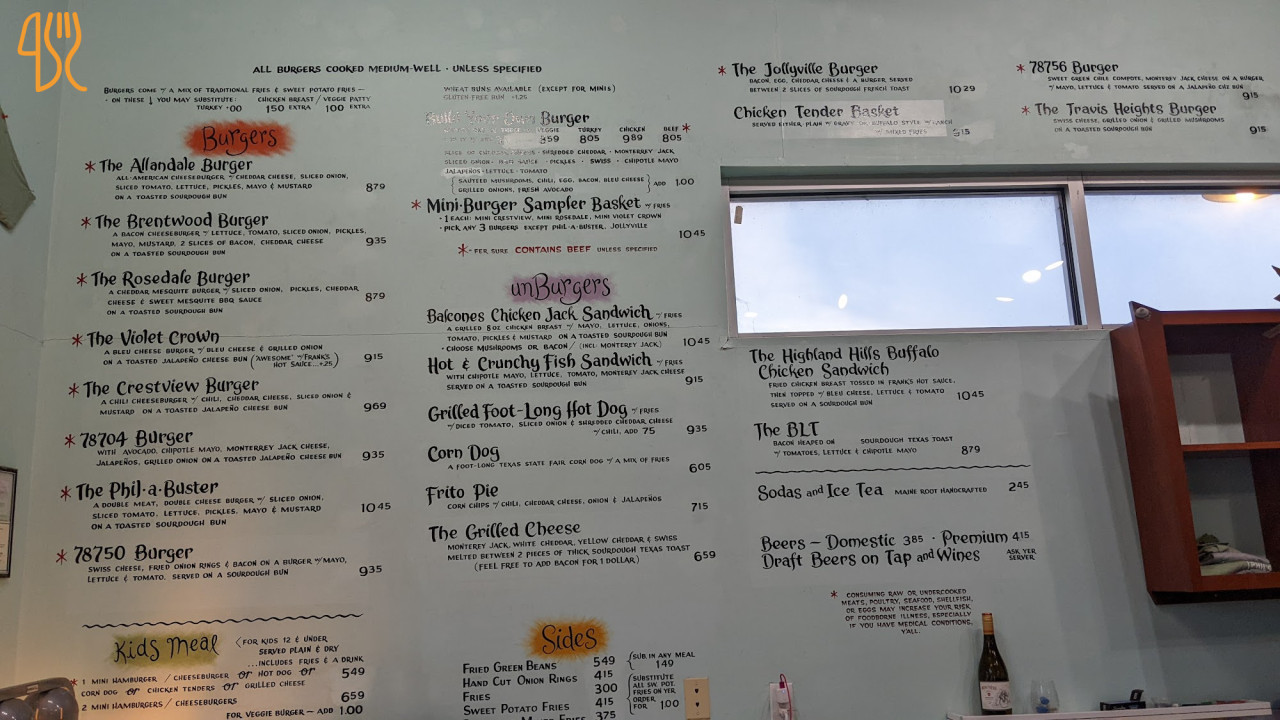 ALL BURGERS COOKED MEDIUM-WELL · UNLESS SPECIFIED
BURGERS COME W/ A MIX OF TRADITIONAL FRIES & SWEET POTATO FRIES —
· ON THESE ↓ YOU MAY SUBSTITUTE: CHICKEN BREAST / VEGGIE PATTY
TURKEY +00 150 EXTRA 100 EXTRA
Burgers
* The Allandale Burger
ALL-AMERICAN CHEESEBURGER W/ CHEDDAR CHEESE, SLICED ONION,
SLICED TOMATO, LETTUCE, PICKLES, MAYO & MUSTARD 879
ON A TOASTED SOURDOUGH BUN
* The Brentwood Burger
A BACON CHEESEBURGER W/ LETTUCE, TOMATO, SLICED ONION, PICKLES,
MAYO, MUSTARD, 2 SLICES OF BACON, CHEDDAR CHEESE 935
ON A TOASTED SOURDOUGH BUN
* The Rosedale Burger
A CHEDDAR MESQUITE BURGER W/ SLICED ONION, PICKLES, CHEDDAR
CHEESE & SWEET MESQUITE BBQ SAUCE 879
ON A TOASTED SOURDOUGH BUN
* The Violet Crown
A BLEU CHEESE BURGER W/ BLEU CHEESE & GRILLED ONION
ON A TOASTED JALAPEÑO CHEESE BUN ("AWESOME" W/ FRANK'S 915
HOT SAUCE...+.25)
* The Crestview Burger
A CHILI CHEESEBURGER W/ CHILI, CHEDDAR CHEESE, SLICED ONION &
MUSTARD ON A TOASTED JALAPEÑO CHEESE BUN 969
* 78704 Burger
WITH AVOCADO, CHIPOTLE MAYO, MONTERREY JACK CHEESE,
JALAPEÑOS, GRILLED ONION ON A TOASTED JALAPEÑO CHEESE BUN 935
* The Phil·a·Buster
A DOUBLE MEAT, DOUBLE CHEESE BURGER W/ SLICED ONION,
SLICED TOMATO, LETTUCE, PICKLES, MAYO & MUSTARD 1045
ON A TOASTED SOURDOUGH BUN
* 78750 Burger
SWISS CHEESE, FRIED ONION RINGS & BACON ON A BURGER W/ MAYO,
LETTUCE & TOMATO. SERVED ON A SOURDOUGH BUN 935
Kids Meal
(FOR KIDS 12 & UNDER
SERVED PLAIN & DRY
...INCLUDES FRIES & A DRINK
* 1 MINI HAMBURGER / CHEESEBURGER or HOT DOG or 549
CORN DOG or CHICKEN TENDERS or GRILLED CHEESE
2 MINI HAMBURGERS / CHEESEBURGERS 659
FOR VEGGIE BURGER — ADD 1.00
WHEAT BUNS AVAILABLE (EXCEPT FOR MINIS)
GLUTEN FREE BUN +1.25
Build Your Own Burger
VEGGIE TURKEY CHICKEN BEEF *
859 805 989 805
SHREDDED CHEDDAR · MONTERREY JACK
SLICED ONION · SAUCE · PICKLES · SWISS · CHIPOTLE MAYO
JALAPEÑOS · LETTUCE · TOMATO
{SAUTEED MUSHROOMS, CHILI, EGG, BACON, BLEU CHEESE} ADD 1.00
GRILLED ONIONS, FRESH AVOCADO
* Mini·Burger Sampler Basket W/ FRIES
· 1 EACH: MINI CRESTVIEW, MINI ROSEDALE, MINI VIOLET CROWN
· PICK ANY 3 BURGERS EXCEPT PHIL·A·BUSTER, JOLLYVILLE
1045
*- FER SURE CONTAINS BEEF UNLESS SPECIFIED
unBurgers
Balcones Chicken Jack Sandwich W/ FRIES
A GRILLED 8OZ CHICKEN BREAST W/ MAYO, LETTUCE, ONIONS,
TOMATO, PICKLES & MUSTARD ON A TOASTED SOURDOUGH BUN
· CHOOSE MUSHROOMS OR BACON / (INCL. MONTEREY JACK) 1045
Hot & Crunchy Fish Sandwich W/ FRIES
WITH CHIPOTLE MAYO, LETTUCE, TOMATO, MONTEREY JACK CHEESE
SERVED ON A TOASTED SOURDOUGH BUN 915
Grilled Foot-Long Hot Dog W/ FRIES
W/ DICED TOMATO, SLICED ONION & SHREDDED CHEDDAR CHEESE
W/ CHILI, ADD 75 935
Corn Dog
A FOOT-LONG TEXAS STATE FAIR CORN DOG W/ A MIX OF FRIES
605
Frito Pie
CORN CHIPS W/ CHILI, CHEDDAR CHEESE, ONION & JALAPEÑOS
715
The Grilled Cheese
MONTEREY JACK, WHITE CHEDDAR, YELLOW CHEDDAR & SWISS
MELTED BETWEEN 2 PIECES OF THICK SOURDOUGH TEXAS TOAST 659
(FEEL FREE TO ADD BACON FOR 1 DOLLAR)
Sides
FRIED GREEN BEANS 549 {SUB. IN ANY MEAL
149
HAND CUT ONION RINGS 415
FRIES 300
SWEET POTATO FRIES 415
FRIES 375
{SUBSTITUTE
ALL SW. POT.
FRIES ON YER
ORDER
FOR 1.00
* The Jollyville Burger
BACON, EGG, CHEDDAR CHEESE & A BURGER SERVED
BETWEEN 2 SLICES OF SOURDOUGH FRENCH TOAST 1029
Chicken Tender Basket
SERVED EITHER, PLAIN W/ GRAVY, OR BUFFALO STYLE W/ RANCH
W/ MIXED FRIES 915
* 78756 Burger
SWEET GREEN CHILE COMPOTE, MONTEREY JACK CHEESE ON A BURGER,
W/ MAYO, LETTUCE & TOMATO SERVED ON A JALAPEÑO CHZ BUN
915
* The Travis Heights Burger
SWISS CHEESE, GRILLED ONION & GRILLED MUSHROOMS
ON A TOASTED SOURDOUGH BUN 915
The Highland Hills Buffalo
Chicken Sandwich
FRIED CHICKEN BREAST TOSSED IN FRANK'S HOT SAUCE,
THEN TOPPED W/ BLEU CHEESE, LETTUCE & TOMATO 1045
SERVED ON A SOURDOUGH BUN
The BLT
BACON HEAPED ON SOURDOUGH TEXAS TOAST
W/ TOMATOES, LETTUCE & CHIPOTLE MAYO 879
Sodas and Ice Tea MAINE ROOT HANDCRAFTED 245
Beers — Domestic 385 · Premium 415
Draft Beers on Tap and Wines ASK YER
SERVER
* CONSUMING RAW OR UNDERCOOKED
MEATS, POULTRY, SEAFOOD, SHELLFISH,
OR EGGS MAY INCREASE YOUR RISK
OF FOODBORNE ILLNESS, ESPECIALLY
IF YOU HAVE MEDICAL CONDITIONS,
Y'ALL.